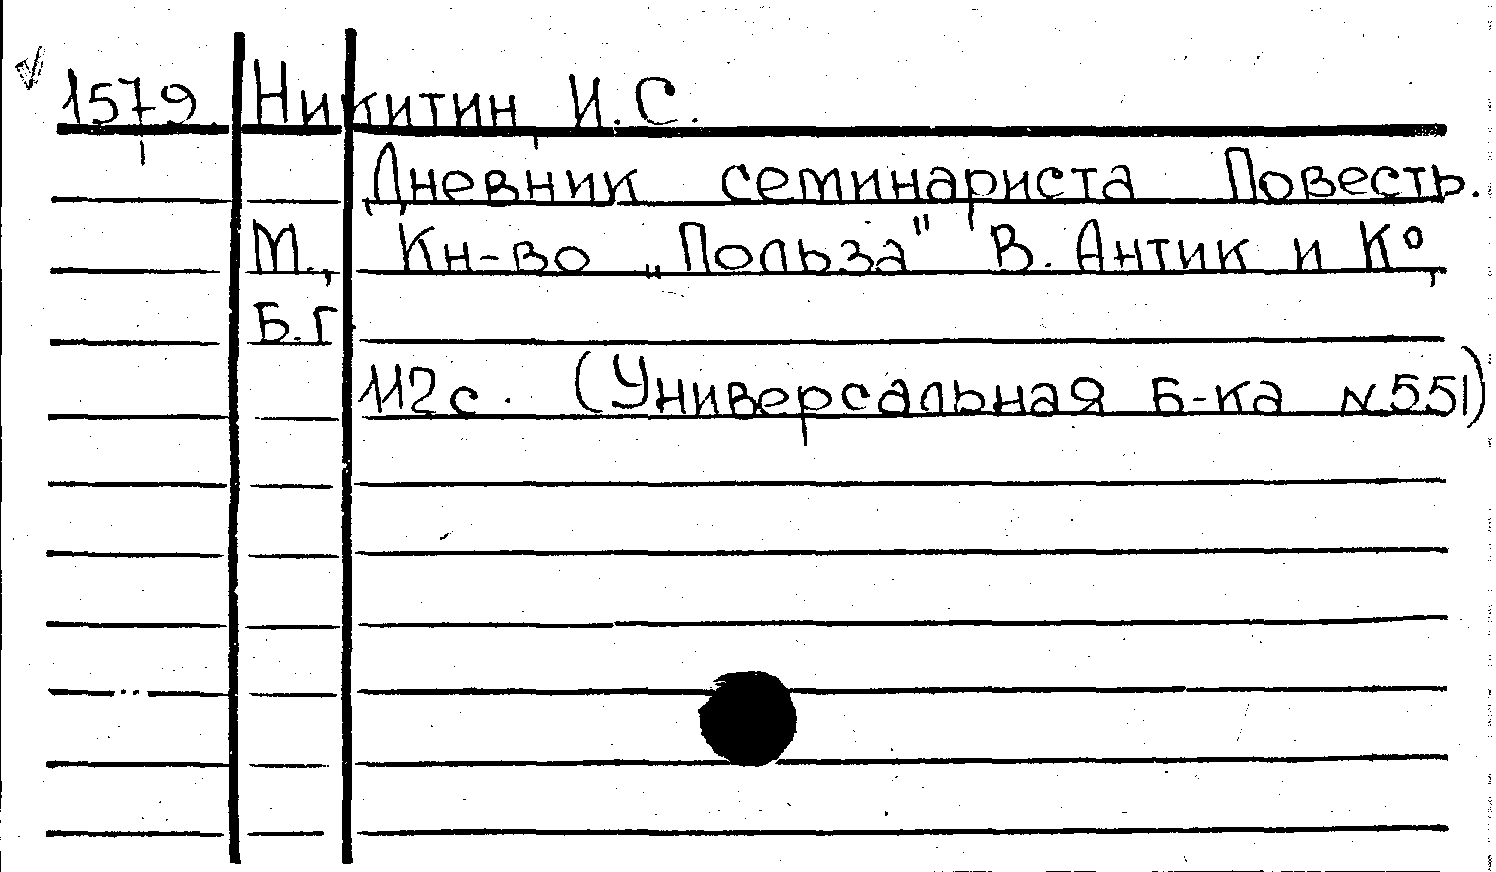 1579 Никитин, И.С.
Дневник семинариста Повесть.
М., Кн-во „Польза" В. Антик и К°,
Б.г
112 с. (Универсальная б-ка N551)